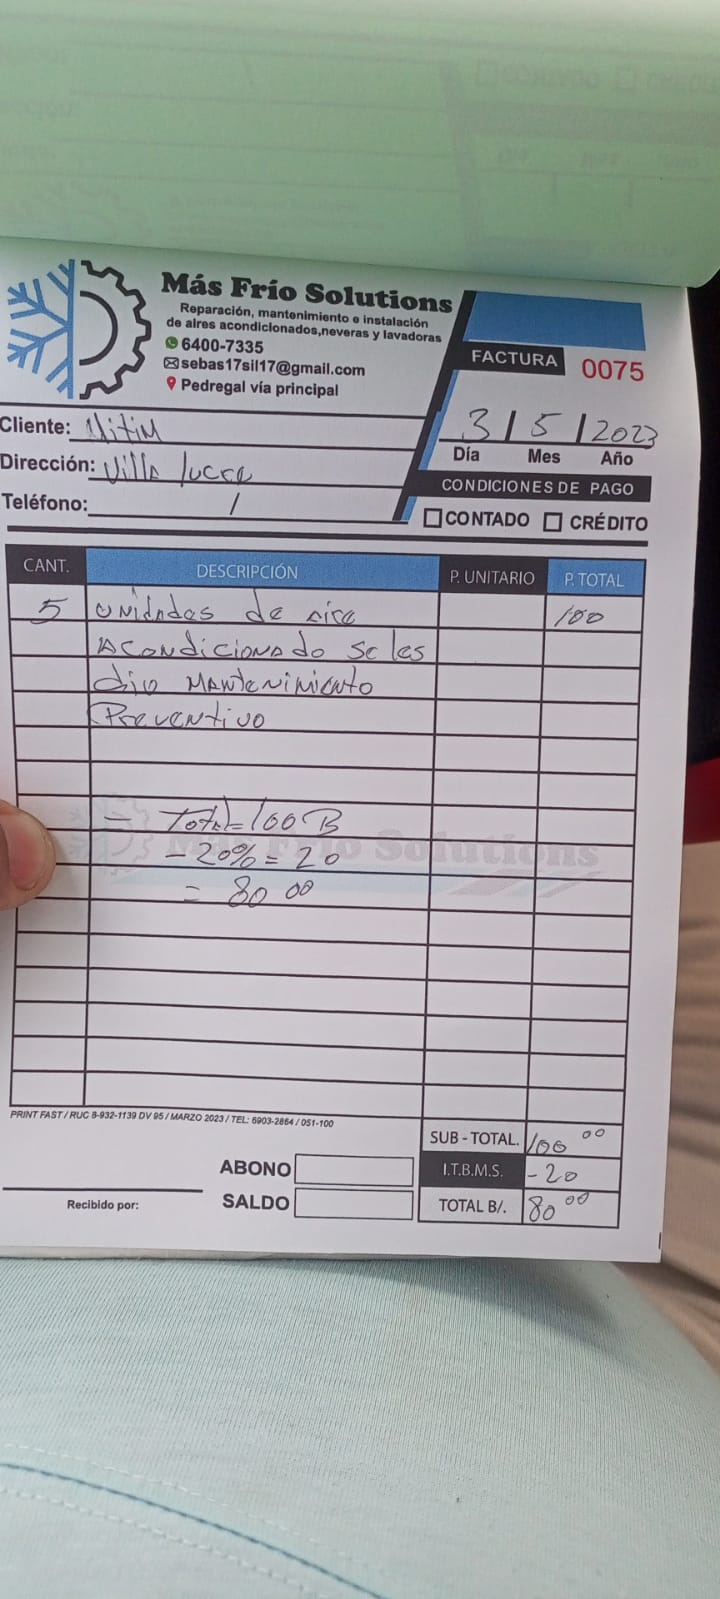 Más Frío Solutions
Reparación, mantenimiento e instalación
de aires acondicionados,neveras y lavadoras
6400-7335
sebas17sil17@gmail.com
Pedregal vía principal
FACTURA 0075
3 / 5 / 2023
Día Mes Año
Cliente:
Dirección: Villa lucre
Teléfono: /
CONDICIONES DE PAGO
CONTADO CRÉDITO
CANT. DESCRIPCIÓN P. UNITARIO P. TOTAL
5 unidades de aire 100
Acondicionado se les
dio MANtenimiento
Preventivo
- Total= 100 B
- 20% = 20
= 80 00
Más Frío Solutions
PRINT FAST / RUC 8-932-1139 DV 95 / MARZO 2023 / TEL: 6903-2864 / 051-100
SUB - TOTAL. 100 00
ABONO I.T.B.M.S. -20
SALDO TOTAL B/. 80 00
Recibido por: